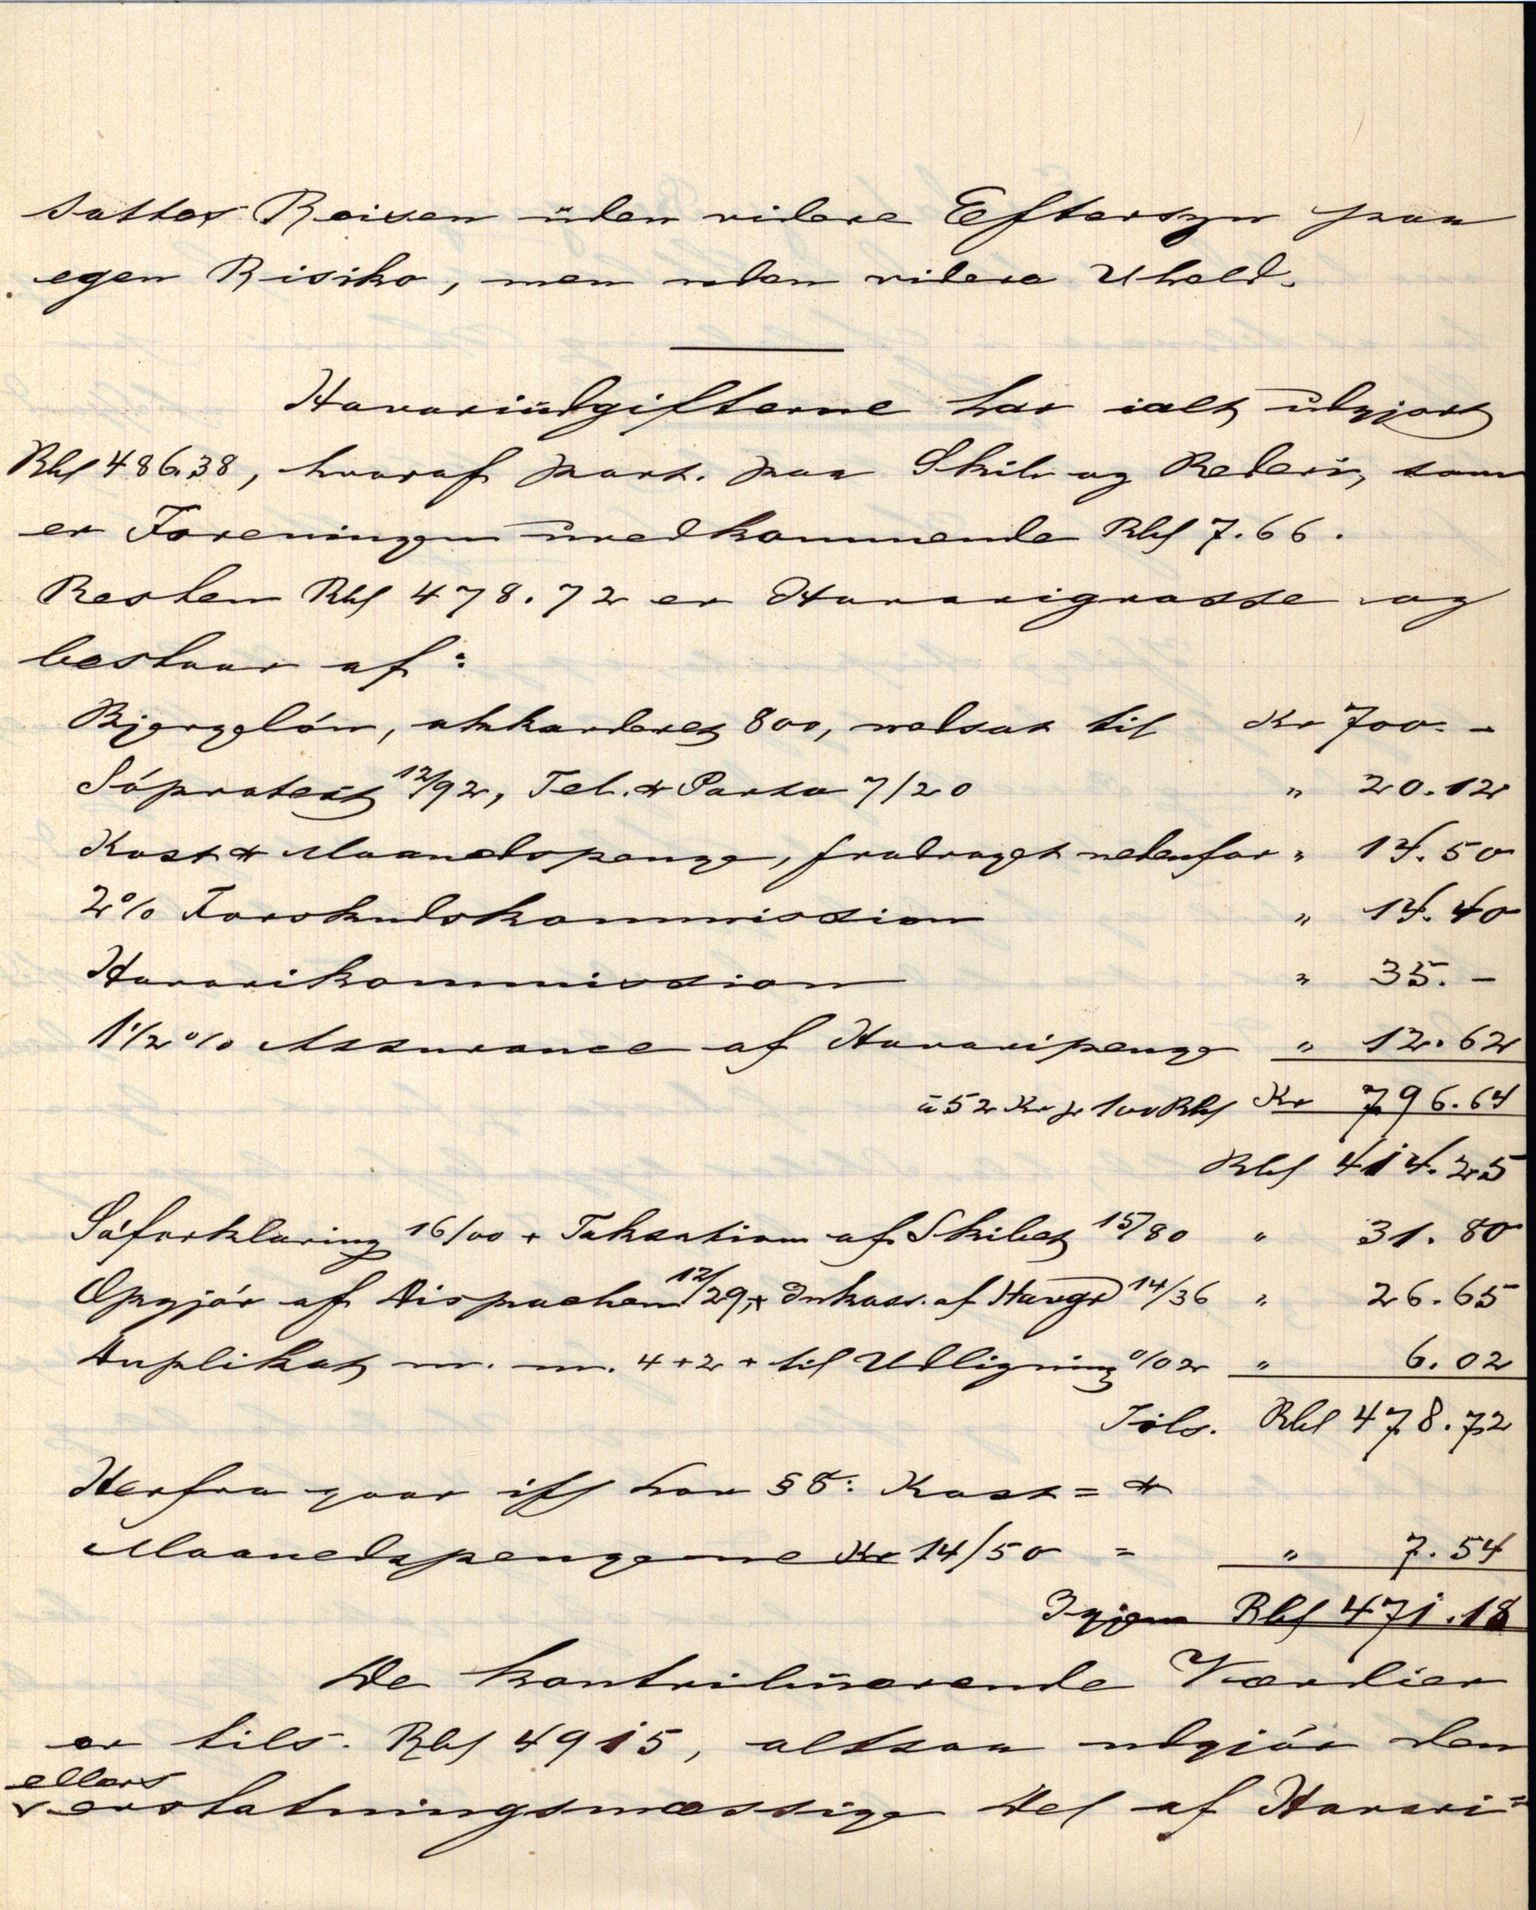 sattes Reisen uden videre Eftersyn paa
egen Risiko, men uden videre Uheld.
Havariudgifterne har ialt udgjort
Rbl 486.38, hvoraf part. paa Skib og Rederi, som
er Foreningen uvedkommende Rbl 7.66.
Resten Rbl 478.72 er Havarigrosse og
bestaar af:
Bjergelön, akkorderet 800, nedsat til Kr 700. -
Söprotest 12/92, Tel. & Porto 7/20 " 20.12
Kost & Maanedspenge, fradraget nedenfor " 14.50
2% Forskudskommission " 14.40
Havarikommission " 35. -
1 1/2 % Assurance af Havaripenge " 12.62
à 52 Kr pr 100 Rbl Kr 796.64
Rbl 414.25
Söforklaring 16/00 + Taksation af Skibet 15/80 " 31.80
Opgjör af Dispachen 12/29, + Inkass. af Havgr 14/36 " 26.65
Duplikat m. m. 4 + 2 + til Udligning 0/02 " 6.02
Tils. Rbl 478.72
Herfra gaar ifl. § 8: Kost= &
Maanedspengene Kr 14/50 = " 7.54
Igjen Rbl 471.18
De kontribuerende Værdier
er tils. Rbl 4915, altsaa udgjör den
ellers
erstatningsmæssige Del af Havari=